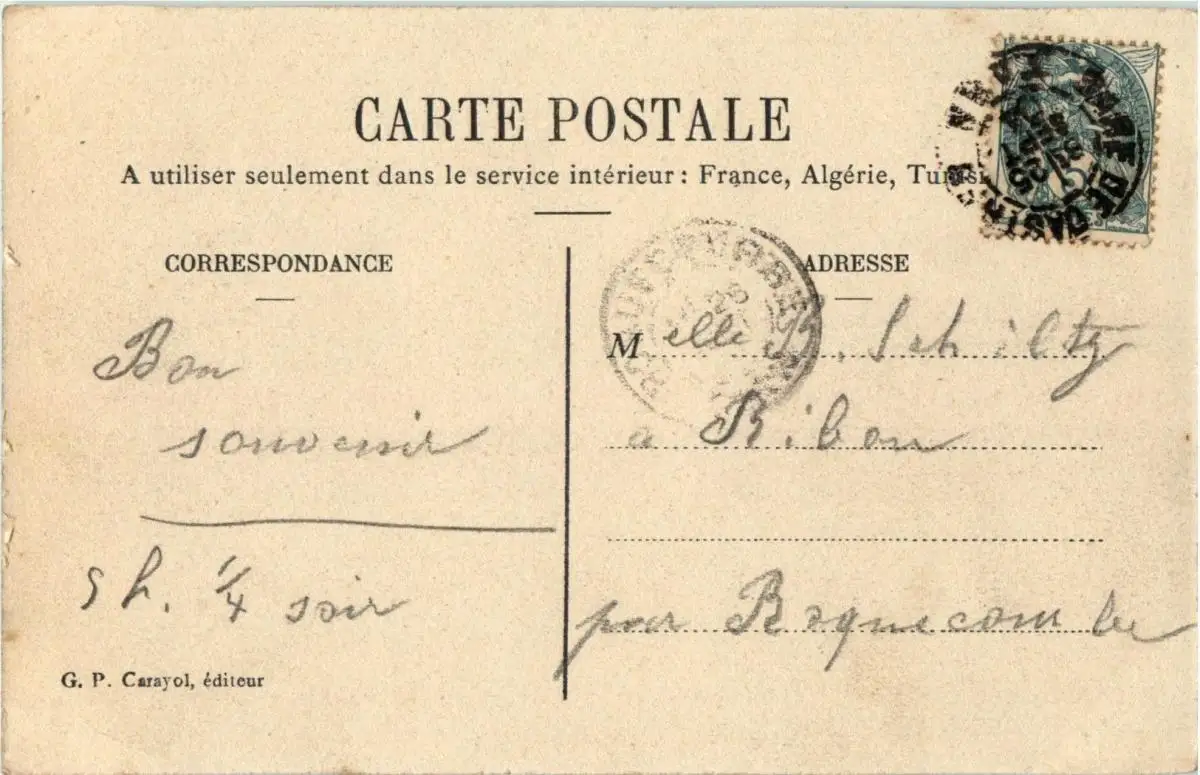 CARTE POSTALE
A utiliser seulement dans le service intérieur : France, Algérie, Tunisi
CORRESPONDANCE
Bon
souvenir
5 h. 1/4 soir
G. P. Carayol, éditeur
ADRESSE
Melle B. Schiltz
a Ribon
par Roquecourbe
ROQUECOURBE
GARE DE CASTRES
TARN
25